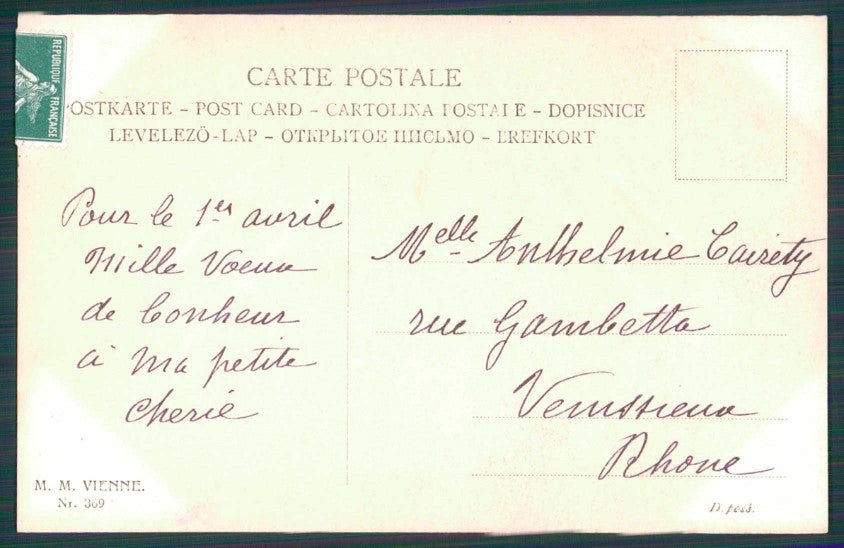 REPUBLIQUE FRANÇAISE
CARTE POSTALE
POSTKARTE – POST CARD – CARTOLINA POSTALE – DOPISNICE
LEVELEZÖ-LAP – ОТКРЫТОЕ ПИСЬМО – BREFKORT
Pour le 1er avril
Mille Voeux
de bonheur
à Ma petite
cherie
Melle Anthelmie Cairety
rue Gambetta
Venissieux
Rhone
M. M. VIENNE.
Nr. 369
D. posé.